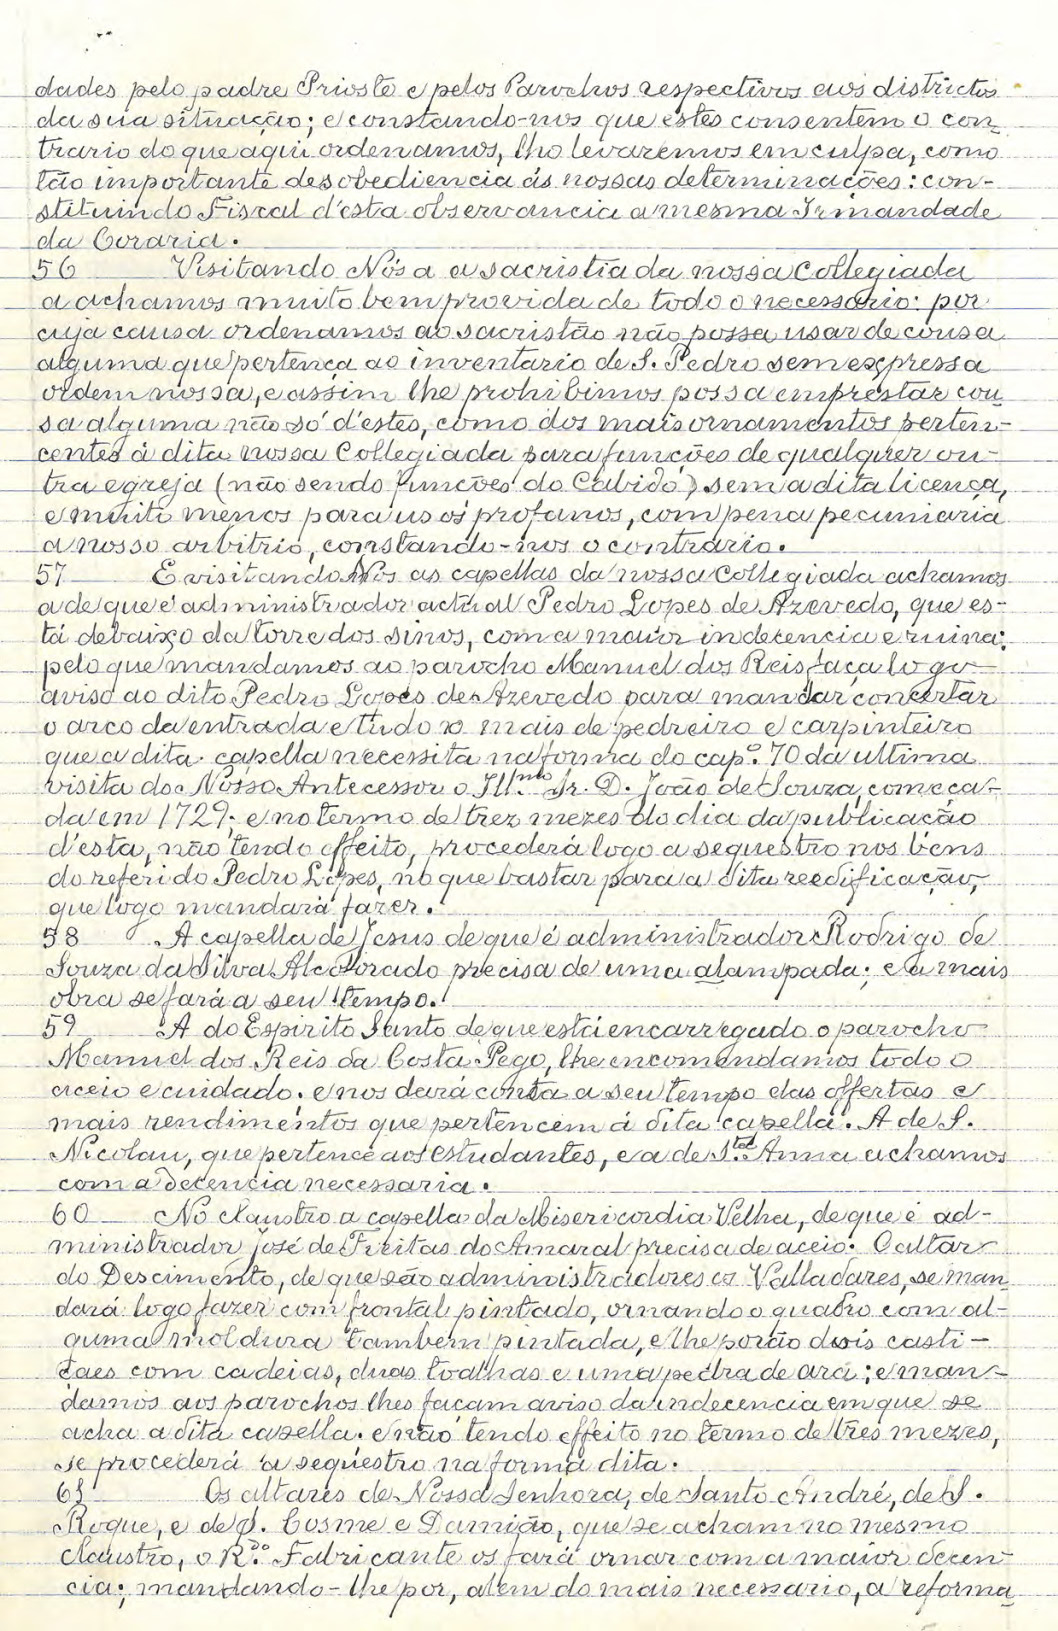 dades pelo padre Prioste e pelos Parochos respectivos aos districtos
da sua situação; e constando-nos que estes consentem o con-
trario do que aqui ordenamos, lho levaremos em culpa, como
tão importante desobediencia ás nossas determinações: con-
stituindo Fiscal d'esta observancia a mesma Irmandade
da Coraria.
56 Visitando Nós a a sacristia da nossa Collegiada
a achamos muito bem provida de todo o necessario: por
cuja causa ordenamos ao sacristão não possa usar de cousa
alguma que pertença ao inventario de S. Pedro sem expressa
ordem nossa, e assim lhe prohibimos possa emprestar cou-
sa alguma não só d'estes, como dos mais ornamentos perten-
centes á dita nossa Collegiada para funcções de qualquer ou-
tra egreja (não sendo funcções do Cabido) sem a dita licença,
e muito menos para usos profanos, com pena pecuniaria
a nosso arbitrio, constando-nos o contrario.
57 E visitando Nós as capellas da nossa Collegiada achamos
a de que é administrador actual Pedro Lopes de Azevedo, que es-
tá debaixo da torre dos sinos, com a maior indecencia e ruina:
pelo que mandamos ao parocho Manuel dos Reis faça logo
aviso ao dito Pedro Lopes de Azevedo para mandar concertar
o arco da entrada e tudo o mais de pedreiro e carpinteiro
que a dita capella necessita na forma do cap.º 70 da ultima
visita do Nosso Antecessor o Ill.mo Sr. D. João de Souza, começa-
da em 1729; e no termo de trez mezes do dia da publicação
d'esta, não tendo effeito, procederá logo a sequestro nos bens
do referido Pedro Lopes, no que bastar para a dita reedificação,
que logo mandará fazer.
58 A capella de Jesus de que é administrador Rodrigo de
Souza da Silva Alcoforado precisa de uma alampada; e a mais
obra se fará a seu tempo.
59 A do Espirito Santo de que está encarregado o parocho
Manuel dos Reis da Costa Pego, lhe encomendamos todo o
aceio e cuidado: e nos dará conta a seu tempo das offertas e
mais rendimentos que pertencem á dita capella. A de S.
Nicolau, que pertence aos estudantes, e a de S.ta Anna achamos
com a decencia necessaria.
60 No claustro a capella da Misericordia Velha, de que é ad-
ministrador josé de Freitas do Amaral precisa de aceio. O altar
do Descimento, de que são administradores os Valladares, se man-
dará logo fazer com frontal pintado, ornando o quadro com al-
guma moldura tambem pintada, e lhe porão dois casti-
çaes com cadeias, duas toalhas e uma pedra de ara; e man-
damos aos parochos lhes façam aviso da indecencia em que se
acha a dita capella. e não tendo effeito no termo de tres mezes,
se procederá a sequestro na forma dita.
61 Os altares de Nossa Senhora, de Santo André, de S.
Roque, e de S. Cosme e Damião, que se acham no mesmo
claustro, o R.do Fabricante os fará ornar com a maior decen-
cia; mandando-lhe por, alem do mais necessario, a reforma